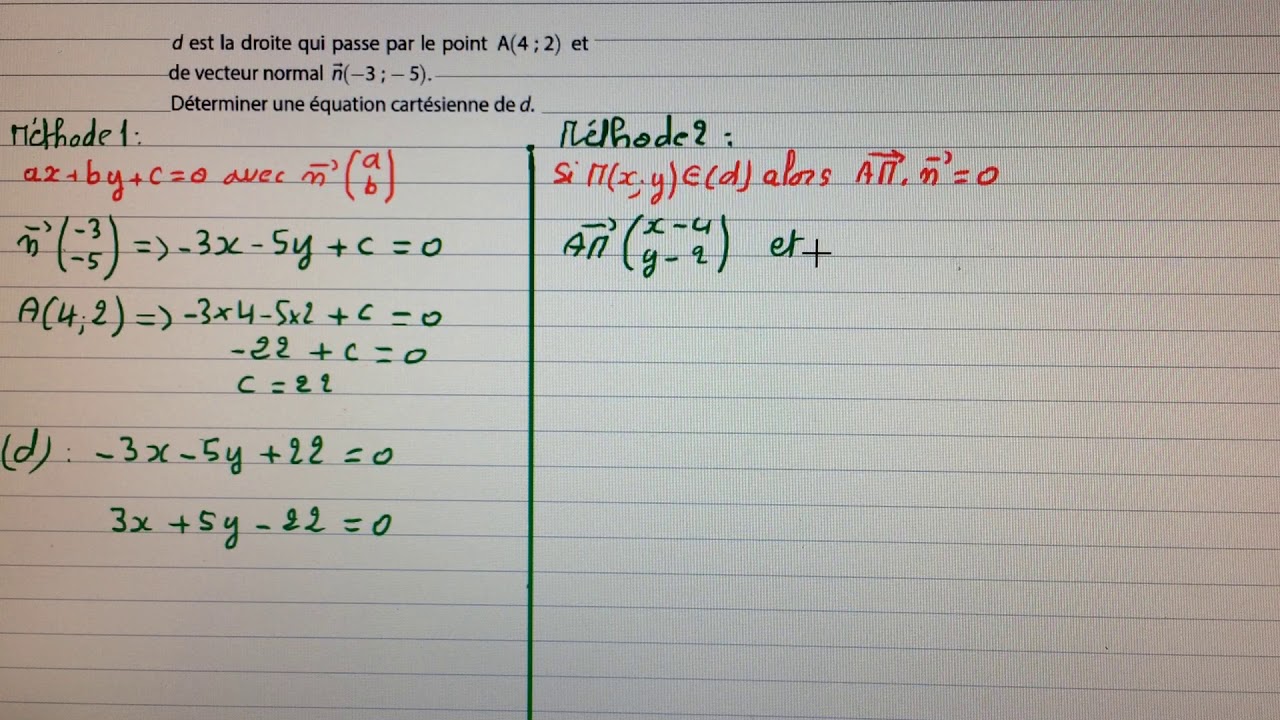 d est la droite qui passe par le point A(4 ; 2) et
de vecteur normal n⃗(−3 ; − 5).
Déterminer une équation cartésienne de d.
Méthode 1 :
ax + by + c = 0 avec n⃗ (a b)
n⃗ (-3 -5) => -3x - 5y + c = 0
A(4; 2) => -3×4 - 5×2 + c = 0
-22 + c = 0
c = 22
(d) : -3x - 5y + 22 = 0
3x + 5y - 22 = 0
Méthode 2 :
Si M(x; y) ∈ (d) alors AM⃗ . n⃗ = 0
AM⃗ (x - 4 y - 2) et